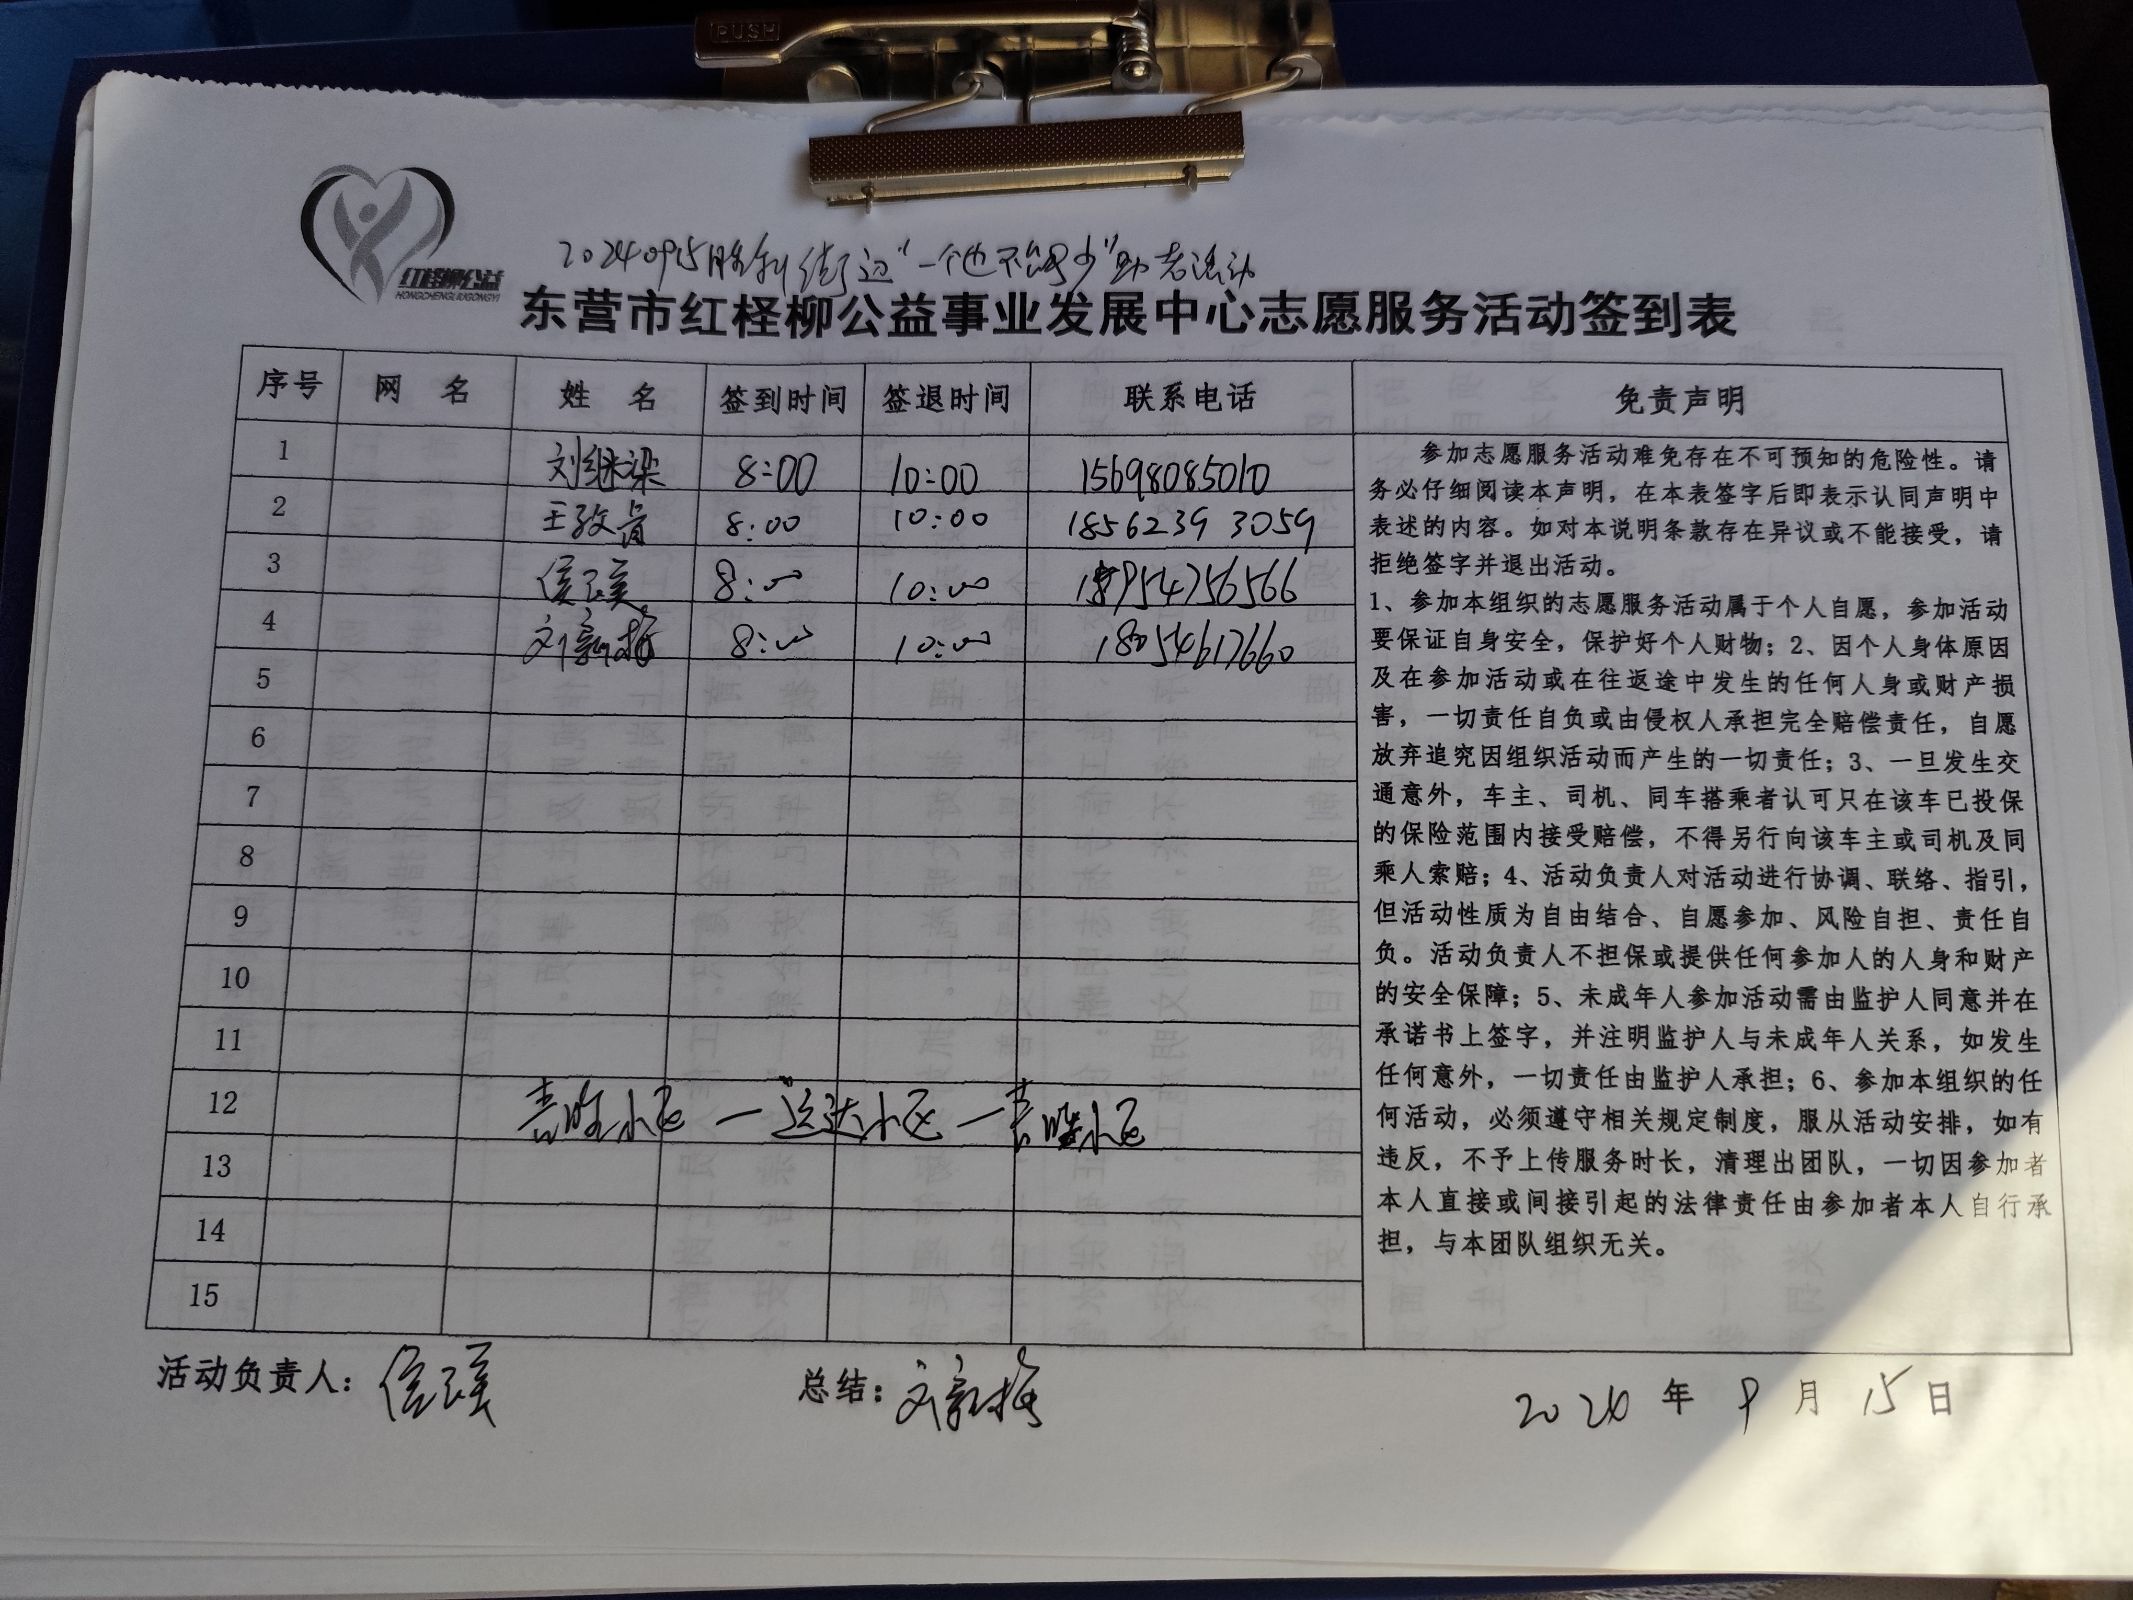 PUSH
红柽柳公益
HONGCHENGLIUGONGYI
20240915胜利街道“一个也不能少”助老活动
东营市红柽柳公益事业发展中心志愿服务活动签到表
序号 网 名 姓 名 签到时间 签退时间 联系电话 免责声明
1 刘继梁 8:00 10:00 15698085010
2 王 8:00 10:00 18562393059
3 侯瑛 8:00 10:00 954756566
4 刘新梅 8:00 10:00 18054617660
5
6
7
8
9
10
11
12 小区一运达小区一小区
13
14
15
参加志愿服务活动难免存在不可预知的危险性。请
务必仔细阅读本声明，在本表签字后即表示认同声明中
表述的内容。如对本说明条款存在异议或不能接受，请
拒绝签字并退出活动。
1、参加本组织的志愿服务活动属于个人自愿，参加活动
要保证自身安全，保护好个人财物；2、因个人身体原因
及在参加活动或在往返途中发生的任何人身或财产损
害，一切责任自负或由侵权人承担完全赔偿责任，自愿
放弃追究因组织活动而产生的一切责任；3、一旦发生交
通意外，车主、司机、同车搭乘者认可只在该车已投保
的保险范围内接受赔偿，不得另行向该车主或司机及同
乘人索赔；4、活动负责人对活动进行协调、联络、指引，
但活动性质为自由结合、自愿参加、风险自担、责任自
负。活动负责人不担保或提供任何参加人的人身和财产
的安全保障；5、未成年人参加活动需由监护人同意并在
承诺书上签字，并注明监护人与未成年人关系，如发生
任何意外，一切责任由监护人承担；6、参加本组织的任
何活动，必须遵守相关规定制度，服从活动安排，如有
违反，不予上传服务时长，清理出团队，一切因参加者
本人直接或间接引起的法律责任由参加者本人自行承
担，与本团队组织无关。
活动负责人：侯瑛 总结：刘新梅 2024年9月15日